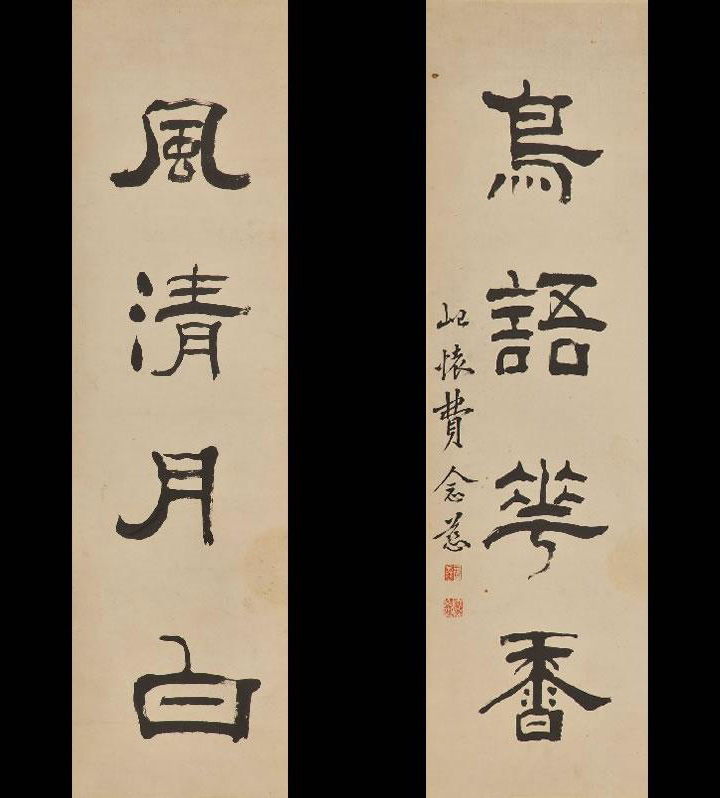 風清月白
鳥語華香
屺懷費念慈